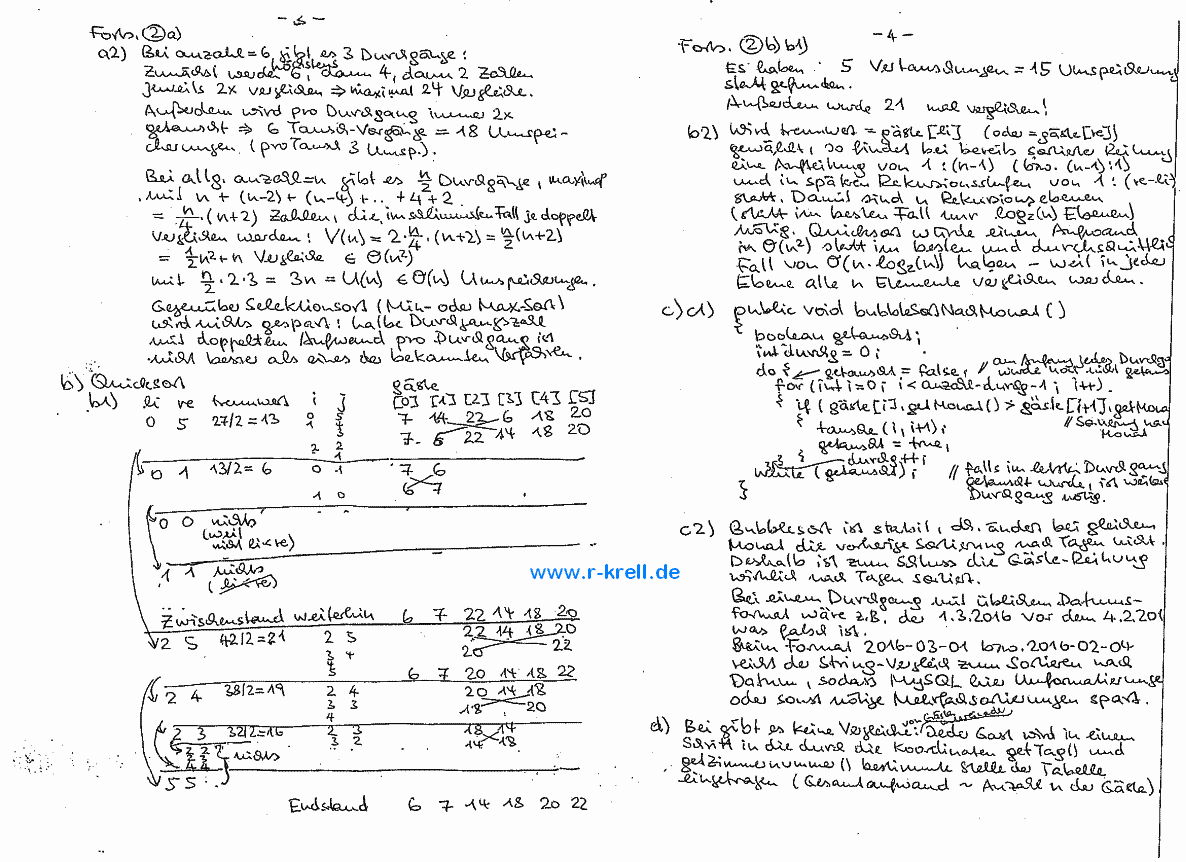 - 3 -
Forts. ② a)
a2) Bei anzahl = 6 gibt es 3 Durchgänge:
Zunächst werden höchstens 6, dann 4, dann 2 Zahlen
jeweils 2x verglichen ⇒ maximal 24 Vergleiche.
Außerdem wird pro Durchgang immer 2x
getauscht ⇒ 6 Tausch-Vorgänge = 18 Umspei-
cherungen (pro Tausch 3 Umsp.).
Bei allg. anzahl = n gibt es n/2 Durchgänge, maximal
mit n + (n-2) + (n-4) + ... + 4 + 2
= n/4 · (n+2) Zahlen, die im schlimmsten Fall je doppelt
verglichen werden: V(n) = 2 · n/4 · (n+2) = n/2 (n+2)
= 1/2 n² + n Vergleiche ∈ O(n²)
mit n/2 · 2 · 3 = 3n = U(n) ∈ O(n) Umspeicherungen.
Gegenüber Selektionsort (Min- oder Max-Sort)
wird nichts gespart: halbe Durchgangszahl
mit doppeltem Aufwand pro Durchgang ist
nicht besser als eines der bekannten Verfahren.
b) Quicksort gäste
b1) li re trennwert i j [0] [1] [2] [3] [4] [5]
0 5 27/2 = 13 0 5 7 14 22 6 18 20
1 4 3 7 6 22 14 18 20
2 2 1
0 1 13/2 = 6 0 1 7 6
6 7
1 0
0 0 nichts
(weil
nicht li < re)
1 1 nichts
(li < re)
Zwischenstand weiterhin 6 7 22 14 18 20
2 5 42/2 = 21 2 5 22 14 18 20
3 4 20 22
4
5 6 7 20 14 18 22
2 4 38/2 = 19 2 4 20 14 18
3 3 18 20
4
2 3 32/2 = 16 2 3 18 14
3 2 14 18
2 2
4 4 nichts
5 5
Endstand 6 7 14 18 20 22
- 4 -
Forts. ② b) b1)
Es haben 5 Vertauschungen = 15 Umspeicherung
stattgefunden.
Außerdem wurde 21 mal verglichen!
b2) Wird trennwert = gäste[li] (oder = gäste[re])
gewählt, so findet bei bereits sortierter Reihung
eine Aufteilung von 1 : (n-1) (bzw. (n-1) : 1)
und in späteren Rekursionsstufen von 1 : (re-li)
statt. Damit sind n Rekursionsebenen
(statt im besten Fall nur log₂(n) Ebenen)
nötig. Quicksort würde einen Aufwand
in O(n²) statt im besten und durchschnittlich
Fall von O(n·log₂(n)) haben – weil in jeder
Ebene alle n Elemente verglichen werden.
c) c1) public void bubbleSortNachMonat()
{
boolean getauscht;
int durchg = 0;
do { getauscht = false; // am Anfang jedes Durchga
wurde noch nicht getaus
for (int i=0; i < anzahl-durchg-1; i++)
{ if (gäste[i].getMonat() > gäste[i+1].getMona
{ // Sortierung nach
tausche(i, i+1); Monat
getauscht = true;
} }
durchg++;
} while (getauscht); // falls im letzten Durchgang
getauscht wurde, ist weiterer
} Durchgang nötig.
c2) Bubblesort ist stabil, d.h. ändert bei gleichem
Monat die vorherige Sortierung nach Tagen nicht.
Deshalb ist zum Schluss die Gäste-Reihung
wirklich nach Tagen sortiert.
Bei einem Durchgang mit üblichem Datums-
format wäre z.B. der 1.3.2016 vor dem 4.2.201
was falsch ist.
Beim Format 2016-03-01 bzw. 2016-02-04
reicht der String-Vergleich zum Sortieren nach
Datum, sodass MySQL hier Umformatierunge
oder sonst nötige Mehrfachsortierungen spart.
d) Bei gibt es keine Vergleiche: Jeder Gast wird in einem
Schritt in die durch die Koordinaten getTag() und
getZimmernummer() bestimmte Stelle der Tabelle
eingetragen (Gesamtaufwand ~ Anzahl n der Gäste)
www.r-krell.de